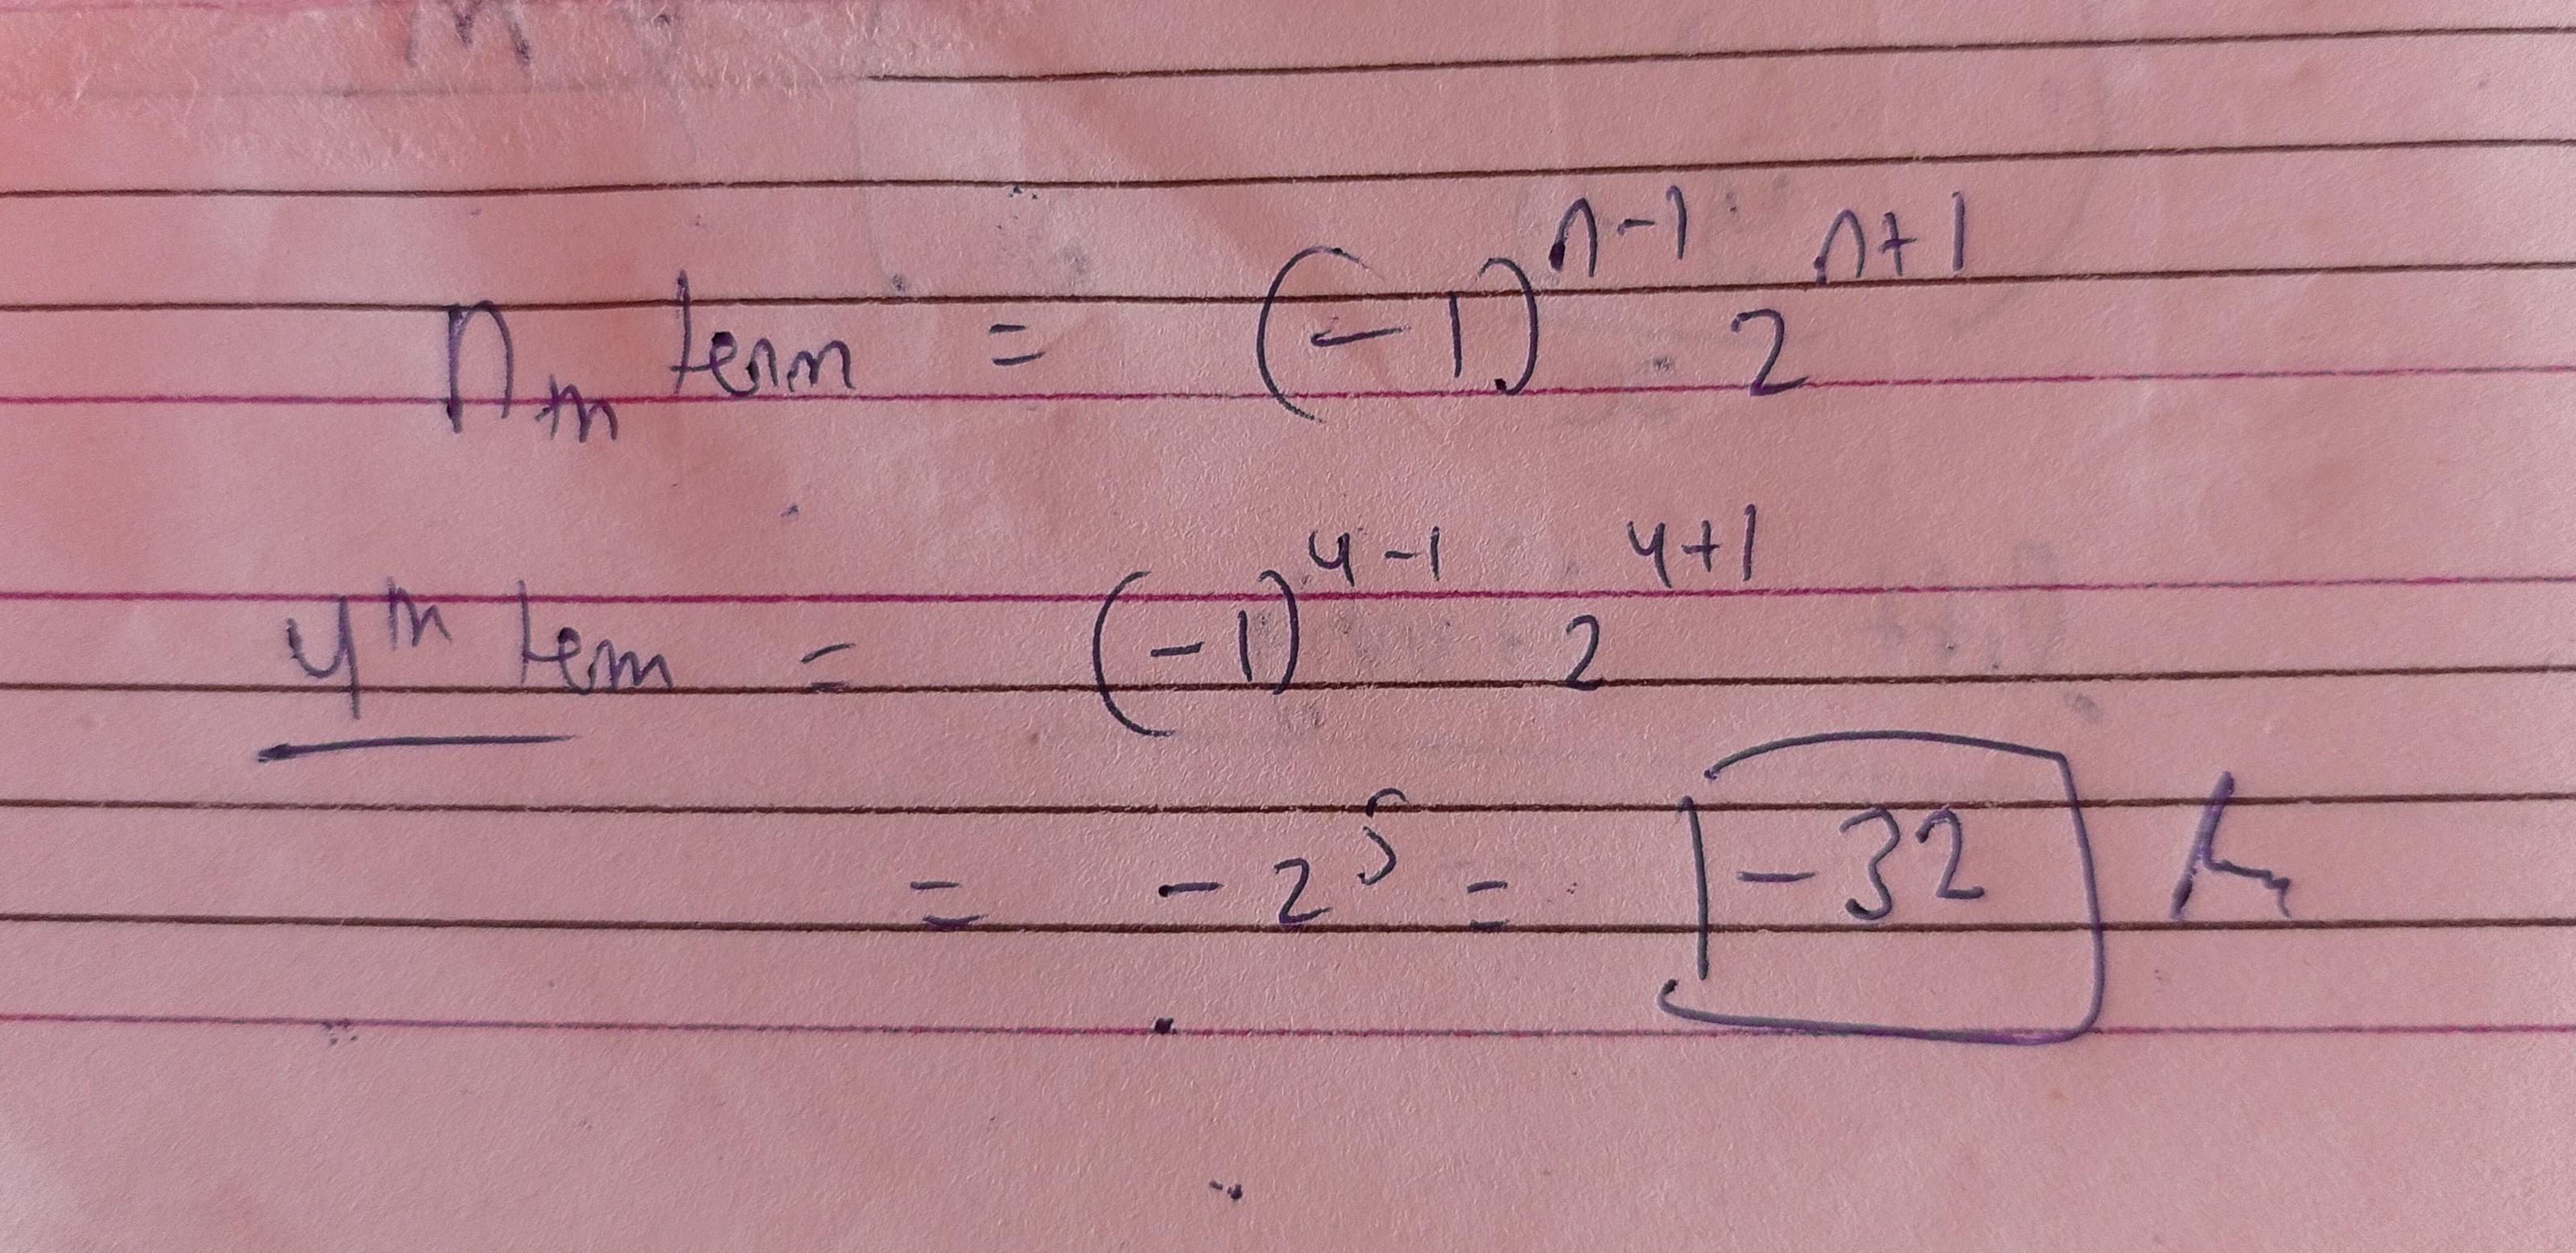 nth term = (-1)^{n-1} 2^{n+1}
4th term = (-1)^{4-1} 2^{4+1}
= -2^5 = -32